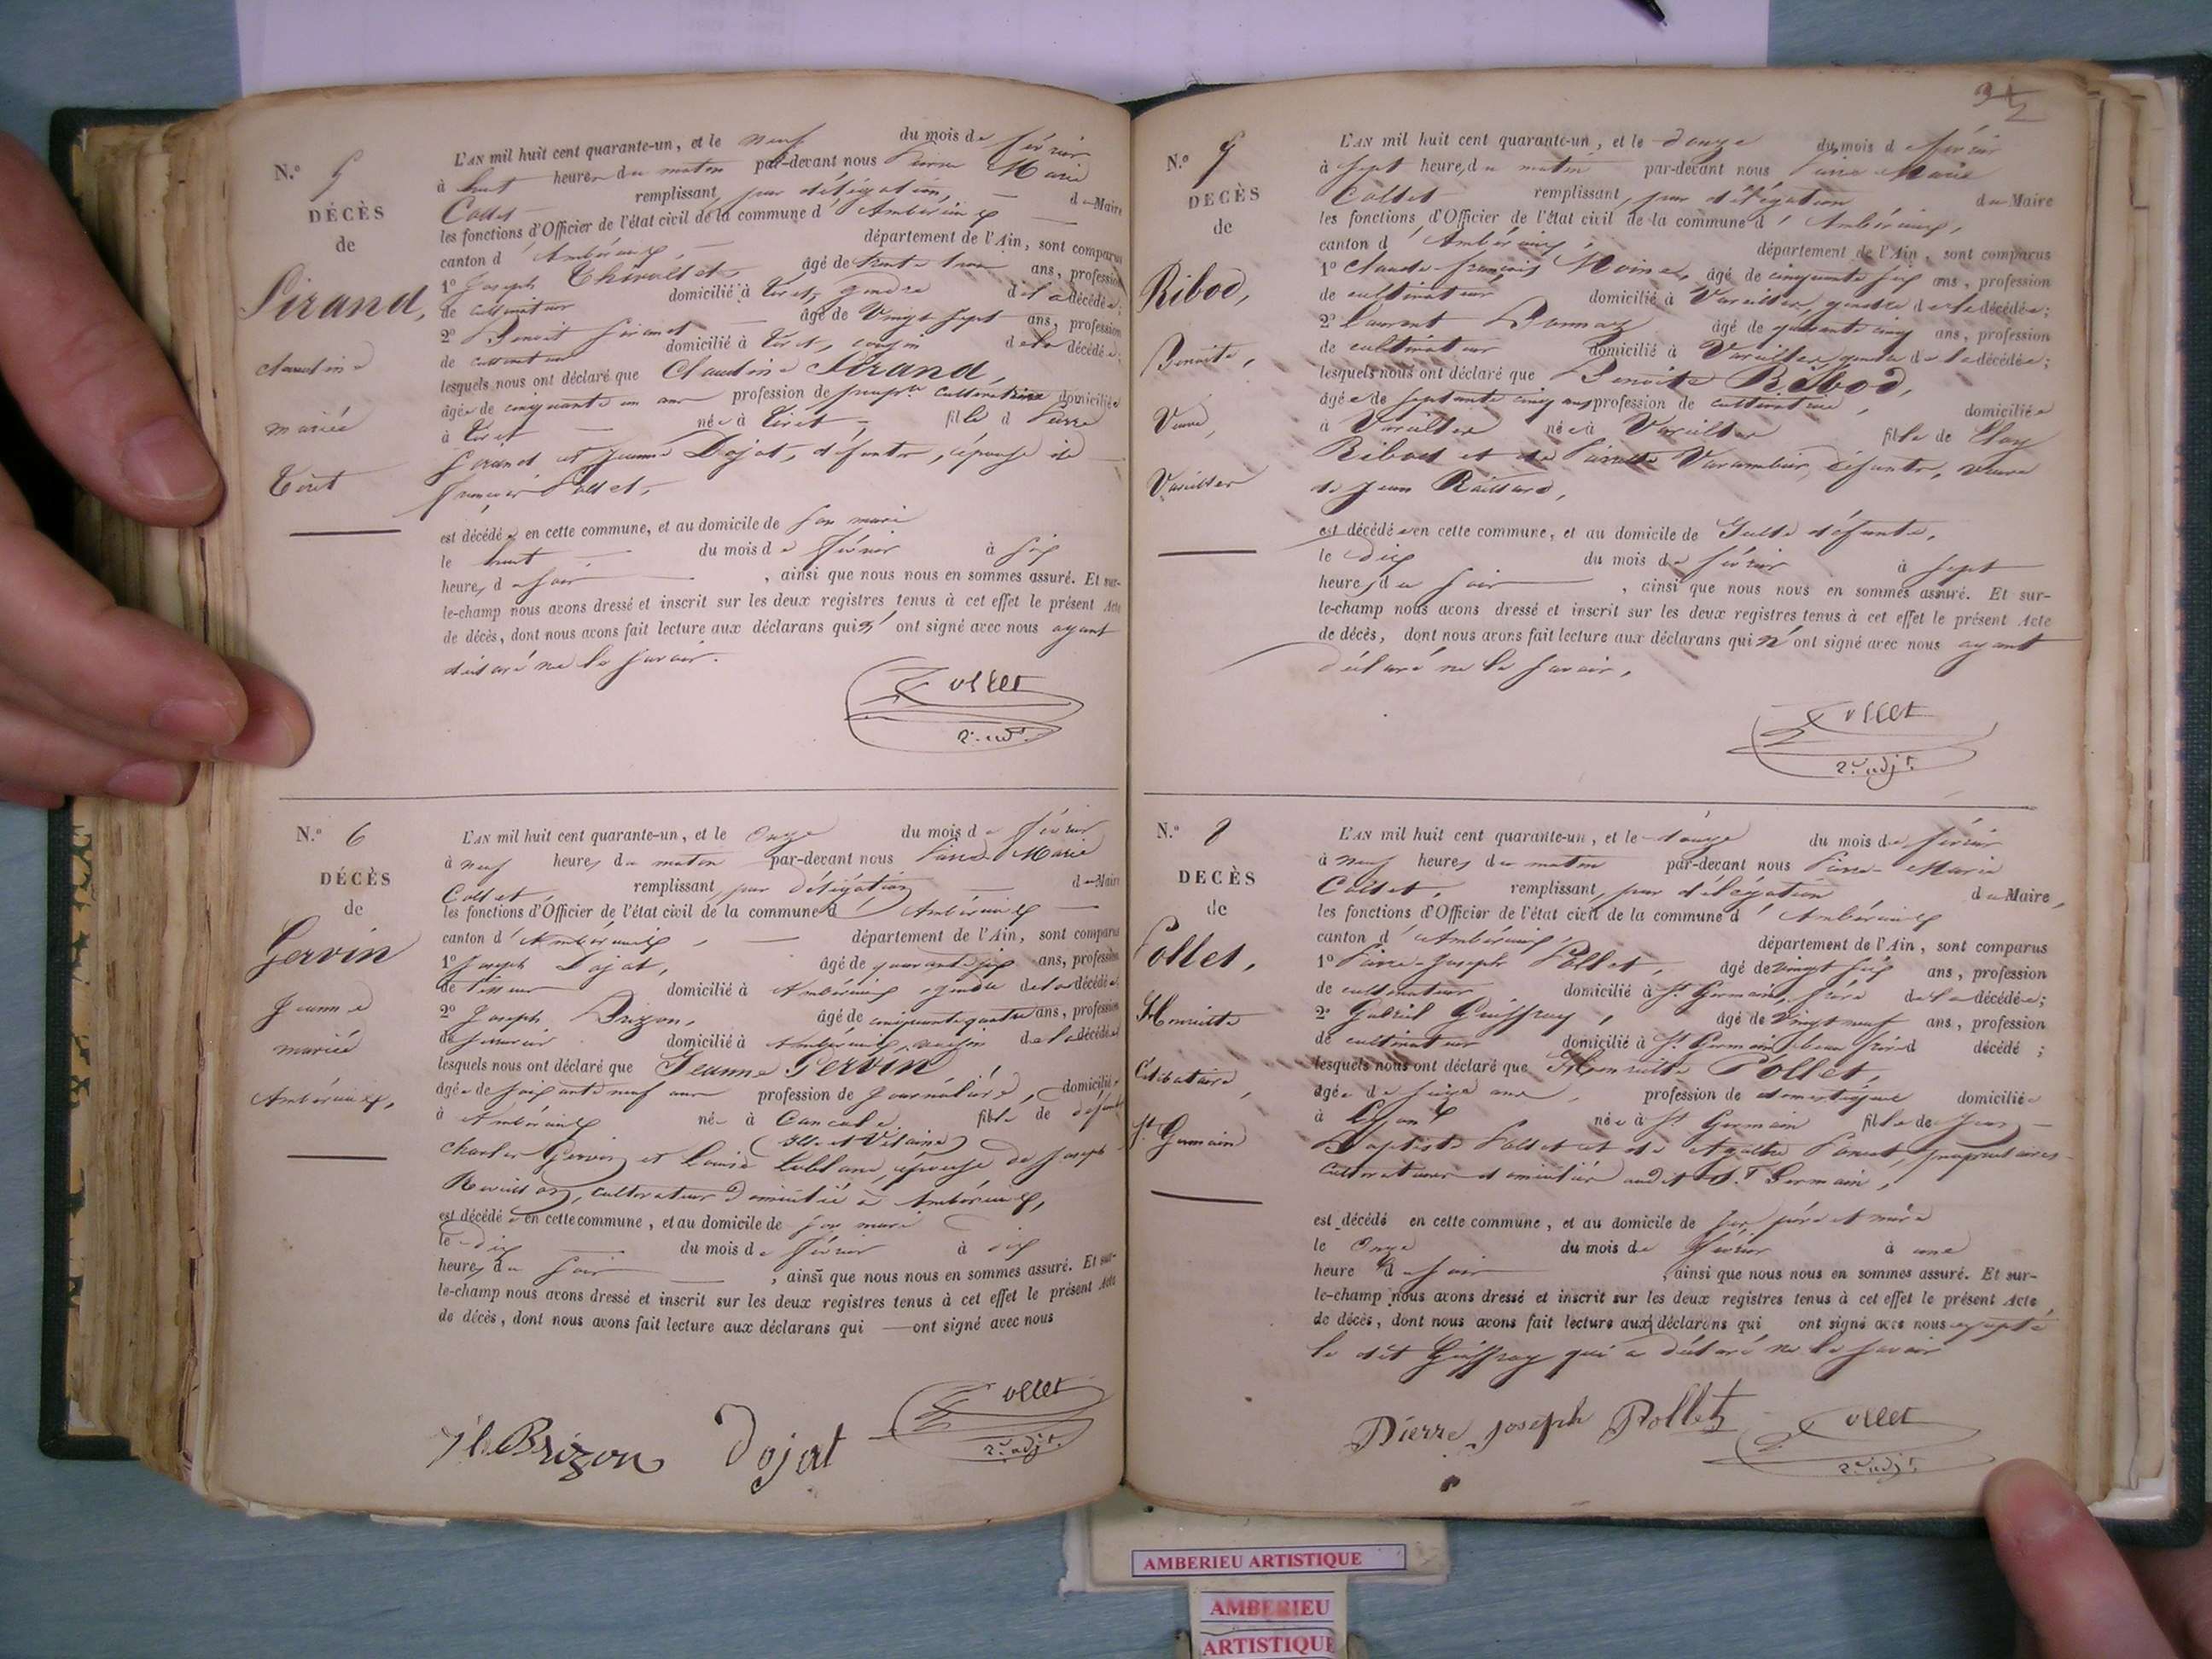 N.º 5
DÉCÈS
de
Sirand,
claudine
mariée
Tiret
L'AN mil huit cent quarante-un, et le neuf du mois de février
à huit heures du matin par-devant nous Pierre Marie
Collet remplissant, par délégation, du Maire
les fonctions d'Officier de l'état civil de la commune d'Ambérieux
canton d'Ambérieux, département de l'Ain, sont comparus
1º Joseph Thivollet, âgé de trente trois ans, profession
de cultivateur domicilié à Tiret, gendre de la décédée;
2º Benoit Sirand âgé de Vingt sept ans, profession
de cultivateur domicilié à Tiret, cousin de la décédée;
lesquels nous ont déclaré que Claudine Sirand,
âgée de cinquante un ans profession de cultivatrice domiciliée
à Tiret née à Tiret, fille d Pierre
Sirand et Jeanne Dojat, défunts, épouse de
françois Pollet,
est décédée en cette commune, et au domicile de son mari
le huit du mois de février à six
heures du soir, ainsi que nous nous en sommes assuré. Et sur-
le-champ nous avons dressé et inscrit sur les deux registres tenus à cet effet le présent Acte
de décès, dont nous avons fait lecture aux déclarans qui n'ont signé avec nous ayant
déclaré ne le savoir.
Collet
2e adjt.
N.º 6
DÉCÈS
de
Gervin
Jeanne
mariée
Ambérieux,
L'AN mil huit cent quarante-un, et le onze du mois de février
à neuf heures du matin par-devant nous Pierre Marie
Collet, remplissant, par délégation du Maire
les fonctions d'Officier de l'état civil de la commune d'Ambérieux
canton d'Ambérieux, département de l'Ain, sont comparus
1º Joseph Dojat, âgé de quarante six ans, profession
de tisseur domicilié à Ambérieux, gendre de la décédée;
2º Joseph Brizon, âgé de cinquante quatre ans, profession
de domicilié à Ambérieux, voisin de la décédée
lesquels nous ont déclaré que Jeanne Gervin
âgée de soixante neuf ans profession de Journalière, domiciliée
à Ambérieux née à Cancale fille de défunts
(Ille et Vilaine)
Charles Gervin et Louise Leblanc, épouse de Joseph
cultivateur domicilié à Ambérieux,
est décédée en cette commune, et au domicile de son mari
le dix du mois de février à six
heures du soir, ainsi que nous nous en sommes assuré. Et sur-
le-champ nous avons dressé et inscrit sur les deux registres tenus à cet effet le présent Acte
de décès, dont nous avons fait lecture aux déclarans qui ont signé avec nous
Brizon Dojat Collet
2e adjt.
N.º 7
DECÈS
de
Ribod,
Benoite,
Veuve,
Vareilles
L'AN mil huit cent quarante-un, et le douze du mois d février
à sept heures du matin par-devant nous Pierre Marie
Collet remplissant, par délégation du Maire
les fonctions d'Officier de l'état civil de la commune d'Ambérieux,
canton d'Ambérieux, département de l'Ain, sont comparus
1º Claude-françois Moine, âgé de cinquante six ans, profession
de cultivateur domicilié à Vareilles, gendre de la décédée;
2º Laurent Bonnaz âgé de quarante cinq ans, profession
de cultivateur domicilié à Vareilles, gendre de la décédée;
lesquels nous ont déclaré que Benoite Ribod,
âgée de septante cinq ans profession de cultivatrice, domiciliée
à Vareilles née à Vareilles fille de Elay
Ribod et de Pierrette Varambier, défunts, veuve
de Jean Raillard,
est décédée en cette commune, et au domicile de Ladite défunte,
le dix du mois de février à sept
heures du soir, ainsi que nous nous en sommes assuré. Et sur-
le-champ nous avons dressé et inscrit sur les deux registres tenus à cet effet le présent Acte
de décès, dont nous avons fait lecture aux déclarans qui n'ont signé avec nous ayant
déclaré ne le savoir,
Collet
2e adjt.
N.º 8
DECÈS
de
Pollet,
Henriette
Célibataire,
St. Germain
L'AN mil huit cent quarante-un, et le douze du mois de février
à neuf heures du matin par-devant nous Pierre-Marie
Collet, remplissant, par délégation du Maire,
les fonctions d'Officier de l'état civil de la commune d'Ambérieux
canton d'Ambérieux, département de l'Ain, sont comparus
1º Pierre-Joseph Pollet, âgé de vingt six ans, profession
de cultivateur domicilié à St. Germain, frère de la décédée;
2º Gabriel Guiffray, âgé de Vingt neuf ans, profession
de cultivateur domicilié à St. Germain, beau frère d décédé;
lesquels nous ont déclaré que Henriette Pollet,
âgée de seize ans, profession de domestique domiciliée
à Lyon née à St. Germain fille de Jean
Baptiste Pollet et de Agathe propriétaires
cultivateurs domiciliés audit St. Germain,
est décédé en cette commune, et au domicile de ses père et mère
le Onze du mois de février à une
heure d soir, ainsi que nous nous en sommes assuré. Et sur-
le-champ nous avons dressé et inscrit sur les deux registres tenus à cet effet le présent Acte,
de décès, dont nous avons fait lecture aux déclarans qui ont signé avec nous excepté
le dit Guiffray qui a déclaré ne le savoir
Pierre Joseph Pollet Collet
2e adjt.
AMBERIEU ARTISTIQUE
AMBERIEU
ARTISTIQUE